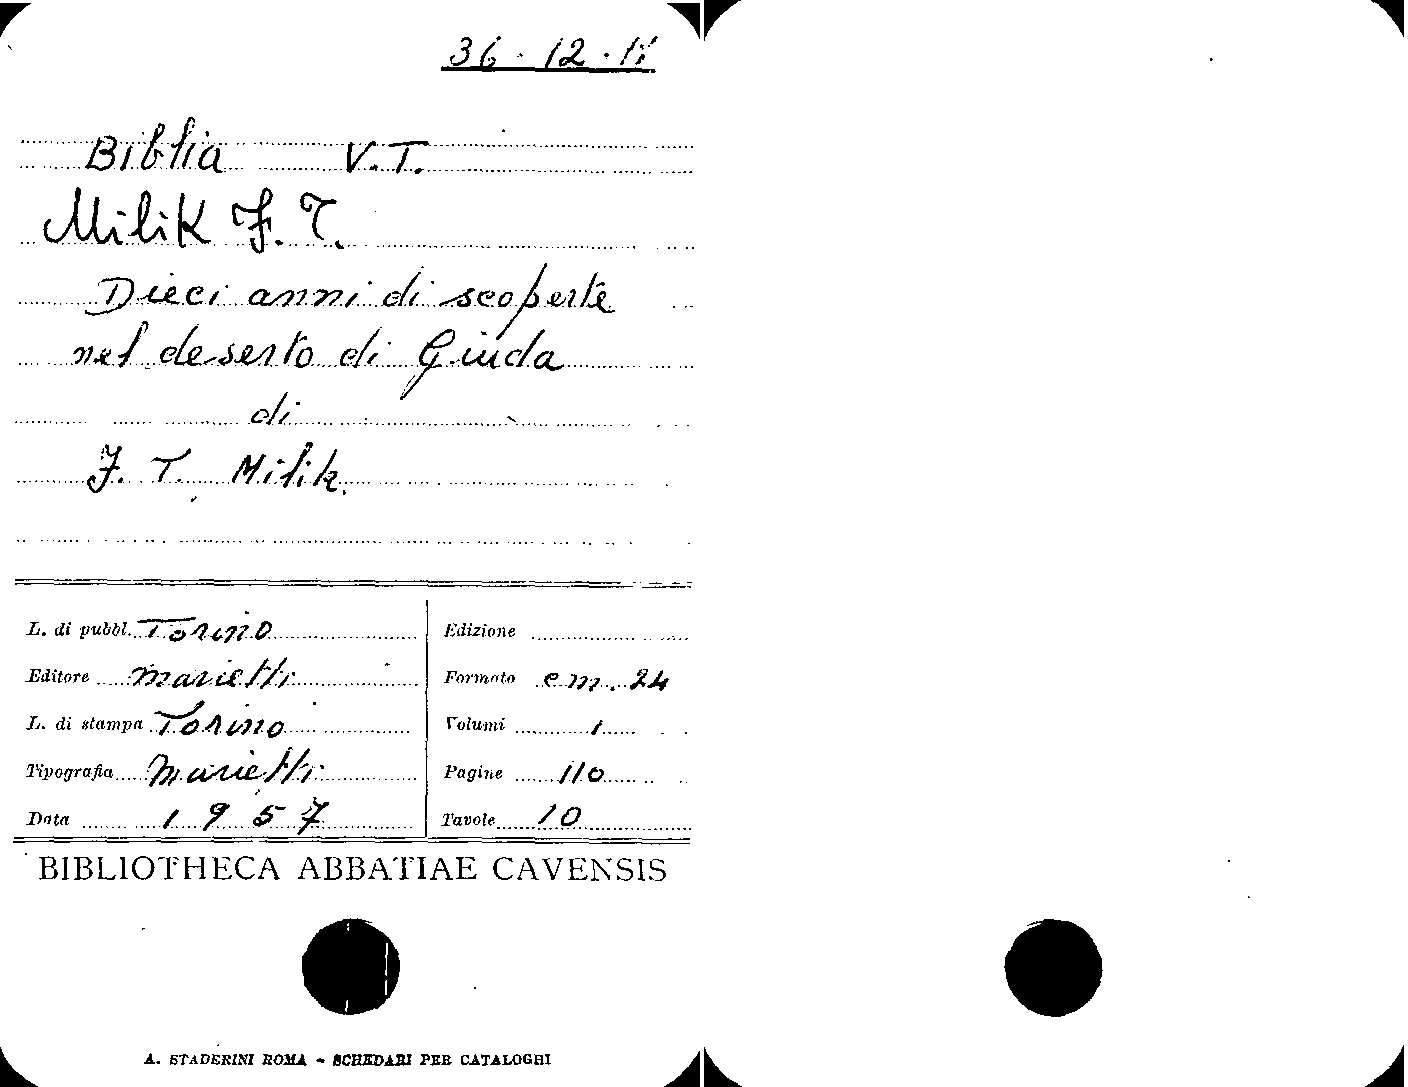 36.12.11
Biblia V.T.
Milik J. T.
Dieci anni di scoperte
nel deserto di Giuda
di
J. T. Milik.
L. di pubbl. Torino
Editore Marietti
L. di stampa Torino
Tipografia Marietti
Data 1957
Edizione
Formato cm. 24
Volumi 1
Pagine 110
Tavole 10
BIBLIOTHECA ABBATIAE CAVENSIS
A. STADERINI ROMA - SCHEDARI PER CATALOGHI